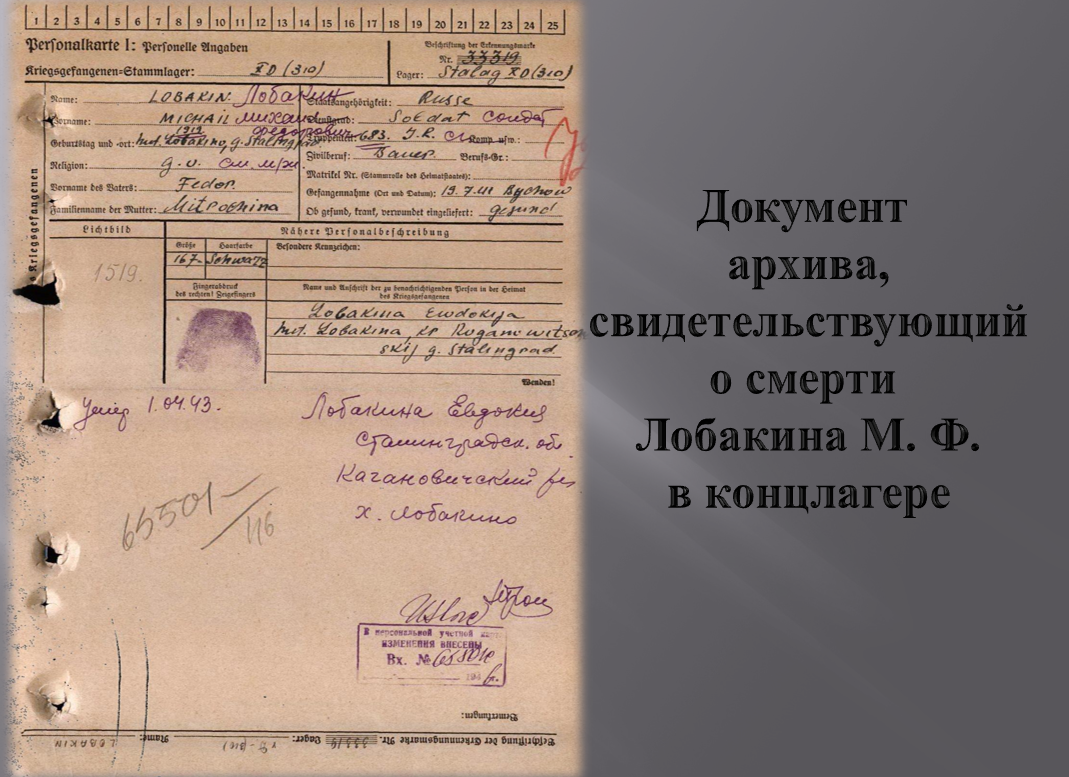 1 2 3 4 5 6 7 8 9 10 11 12 13 14 15 16 17 18 19 20 21 22 23 24 25
Personalkarte I: Personelle Angaben
Kriegsgefangenen=Stammlager: XD (310)
Beschriftung der Erkennungsmarke
Nr. 33319
Lager: Stalag XD (310)
Name: LOBAKIN Лобакин
Vorname: MICHAIL Михаил
Федорович
Geburtstag und -ort: 1919 Lobakino, g. Stalingrad
Religion: g. o.
Vorname des Vaters: Fedor
Familienname der Mutter: Mitrochina
Staatsangehörigkeit: Russe
Dienstgrad: Soldat солдат
Truppenteil: 683. J.R. Komp. usw.:
Zivilberuf: Bauer Berufs-Gr.:
Matrikel Nr. (Stammrolle des Heimatstaates):
Gefangennahme (Ort und Datum): 19.7.41 Bychow
Ob gesund, krank, verwundet eingeliefert: gesund
des Kriegsgefangenen
Lichtbild
1519.
Nähere Personalbeschreibung
Größe Haarfarbe Besondere Kennzeichen:
167 Schwarz
Fingerabdruck
des rechten! Zeigefingers
Name und Anschrift der zu benachrichtigenden Person in der Heimat
des Kriegsgefangenen
Lobakina Ewdokija
Lobakina, Kr
skij g. Stalingrad
Wenden!
Умер 1.04.43.
Лобакина Евдокия
Сталинградск. об
Кагановичский
х. Лобакино
65501
116
В персональной учетной карте
ИЗМЕНЕНИЯ ВНЕСЕНЫ
Вх. №
194
Bemerkungen:
Beschriftung der Erkennungsmarke Nr. 33319 Lager: Name: LOBAKIN
Документ
архива,
свидетельствующий
о смерти
Лобакина М. Ф.
в концлагере